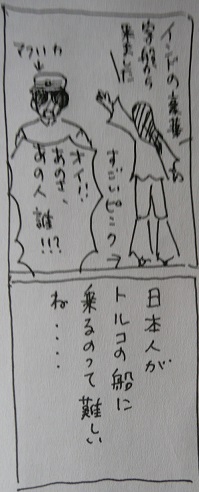 インドの豪華
客船から
来ました
すごいピンク
オイ!!
あのさ、
あの人誰!!?
日本人が
トルコの船に
乗るのって難しい
ね・・・・